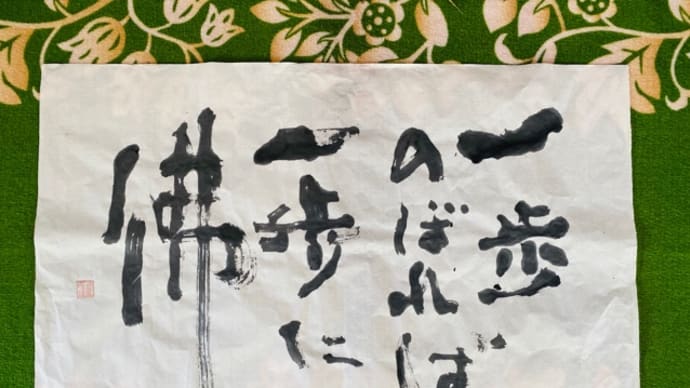 一歩
のぼれば
一歩に
佛